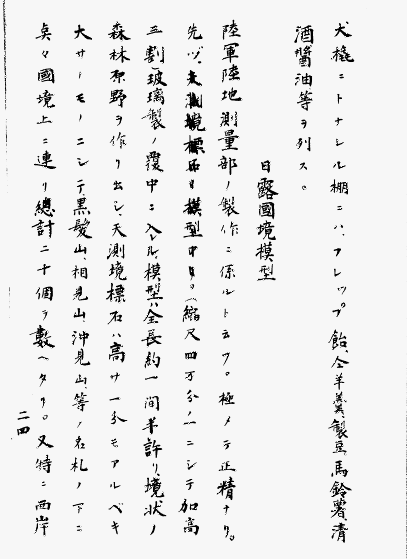 犬橇ニトナシル棚ニハ、フレップ飴、仝羊羹、製豆、馬鈴薯、清
酒醬油等ヲ列ス。
日露國境模型
陸軍陸地測量部ノ製作ニ係ルト云フ。極メテ正精ナリ。
先ヅ、天測境標石ノ模型中ナリ。(縮尺四万分ノ一ニシテ加高
五割)玻璃製ノ覆中ニ入レル、模型ハ全長約一間半許リ、境状ノ
森林原野ヲ作リ出シ、天測境標石ハ高サ一分モアルベキ
大サノモノニシテ黒髮山、相見山、沖見山、等ノ名札ノ下ニ
奌々國境上ニ連リ總計二十個ヲ數ヘタリ。又特ニ西岸
二四